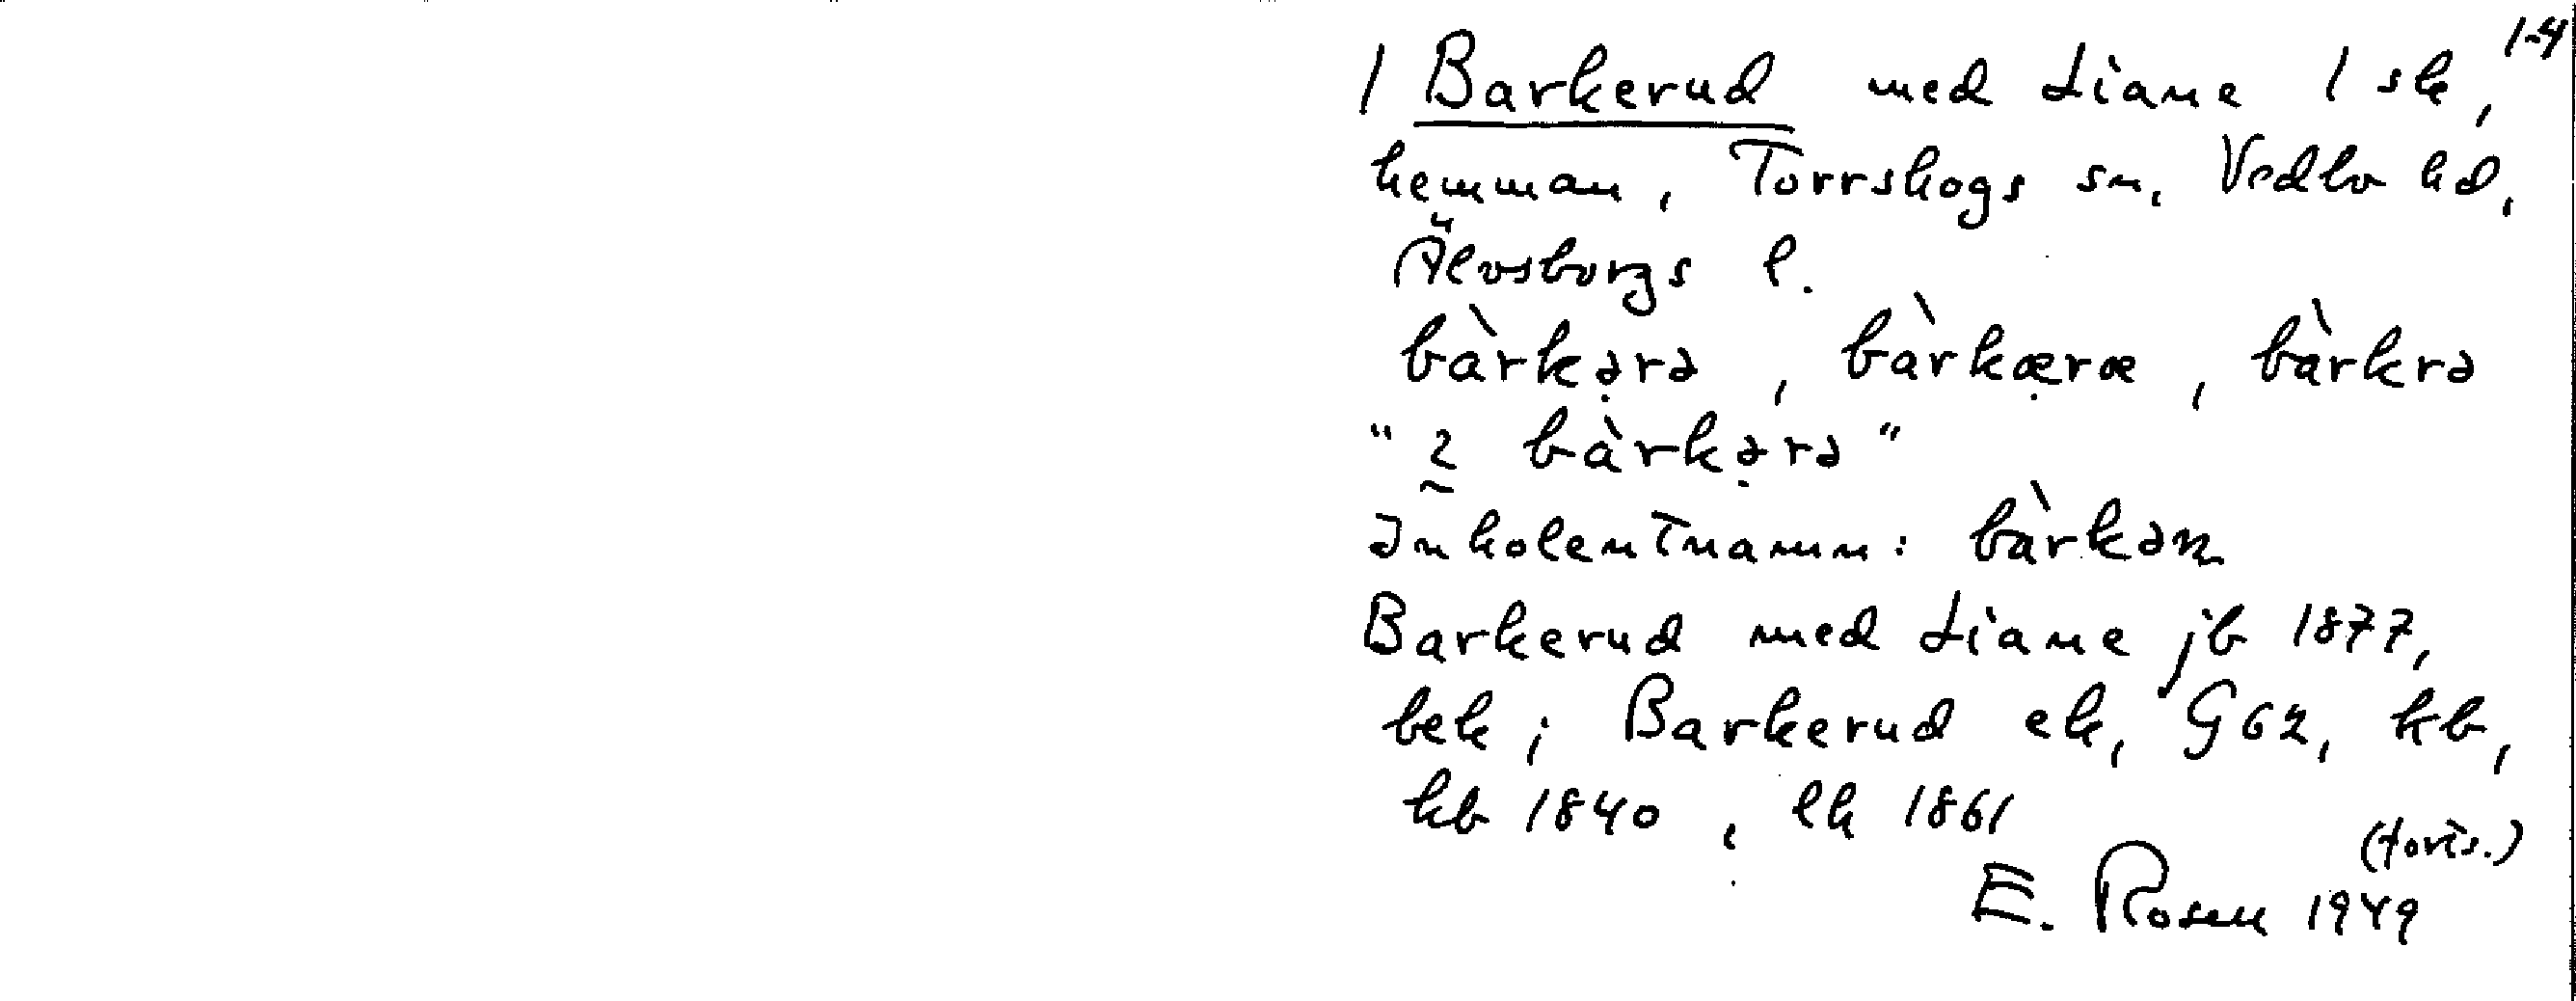 1-4
1 Barkerud med Liane 1 sk,
hemman, Torrskogs sn, Vedbo hd,
Älvsborgs l.
bàrkə̣rə, bàrkæ̣ræ, bàrkrə
"2 bàrkə̣rə"
Inkolentnamn: bàrkən
Barkerud med Liane jb 1877,
bek; Barkerud ek, G62, kb,
hb 1840, lh 1861
(forts.)
E. Rosen 1949